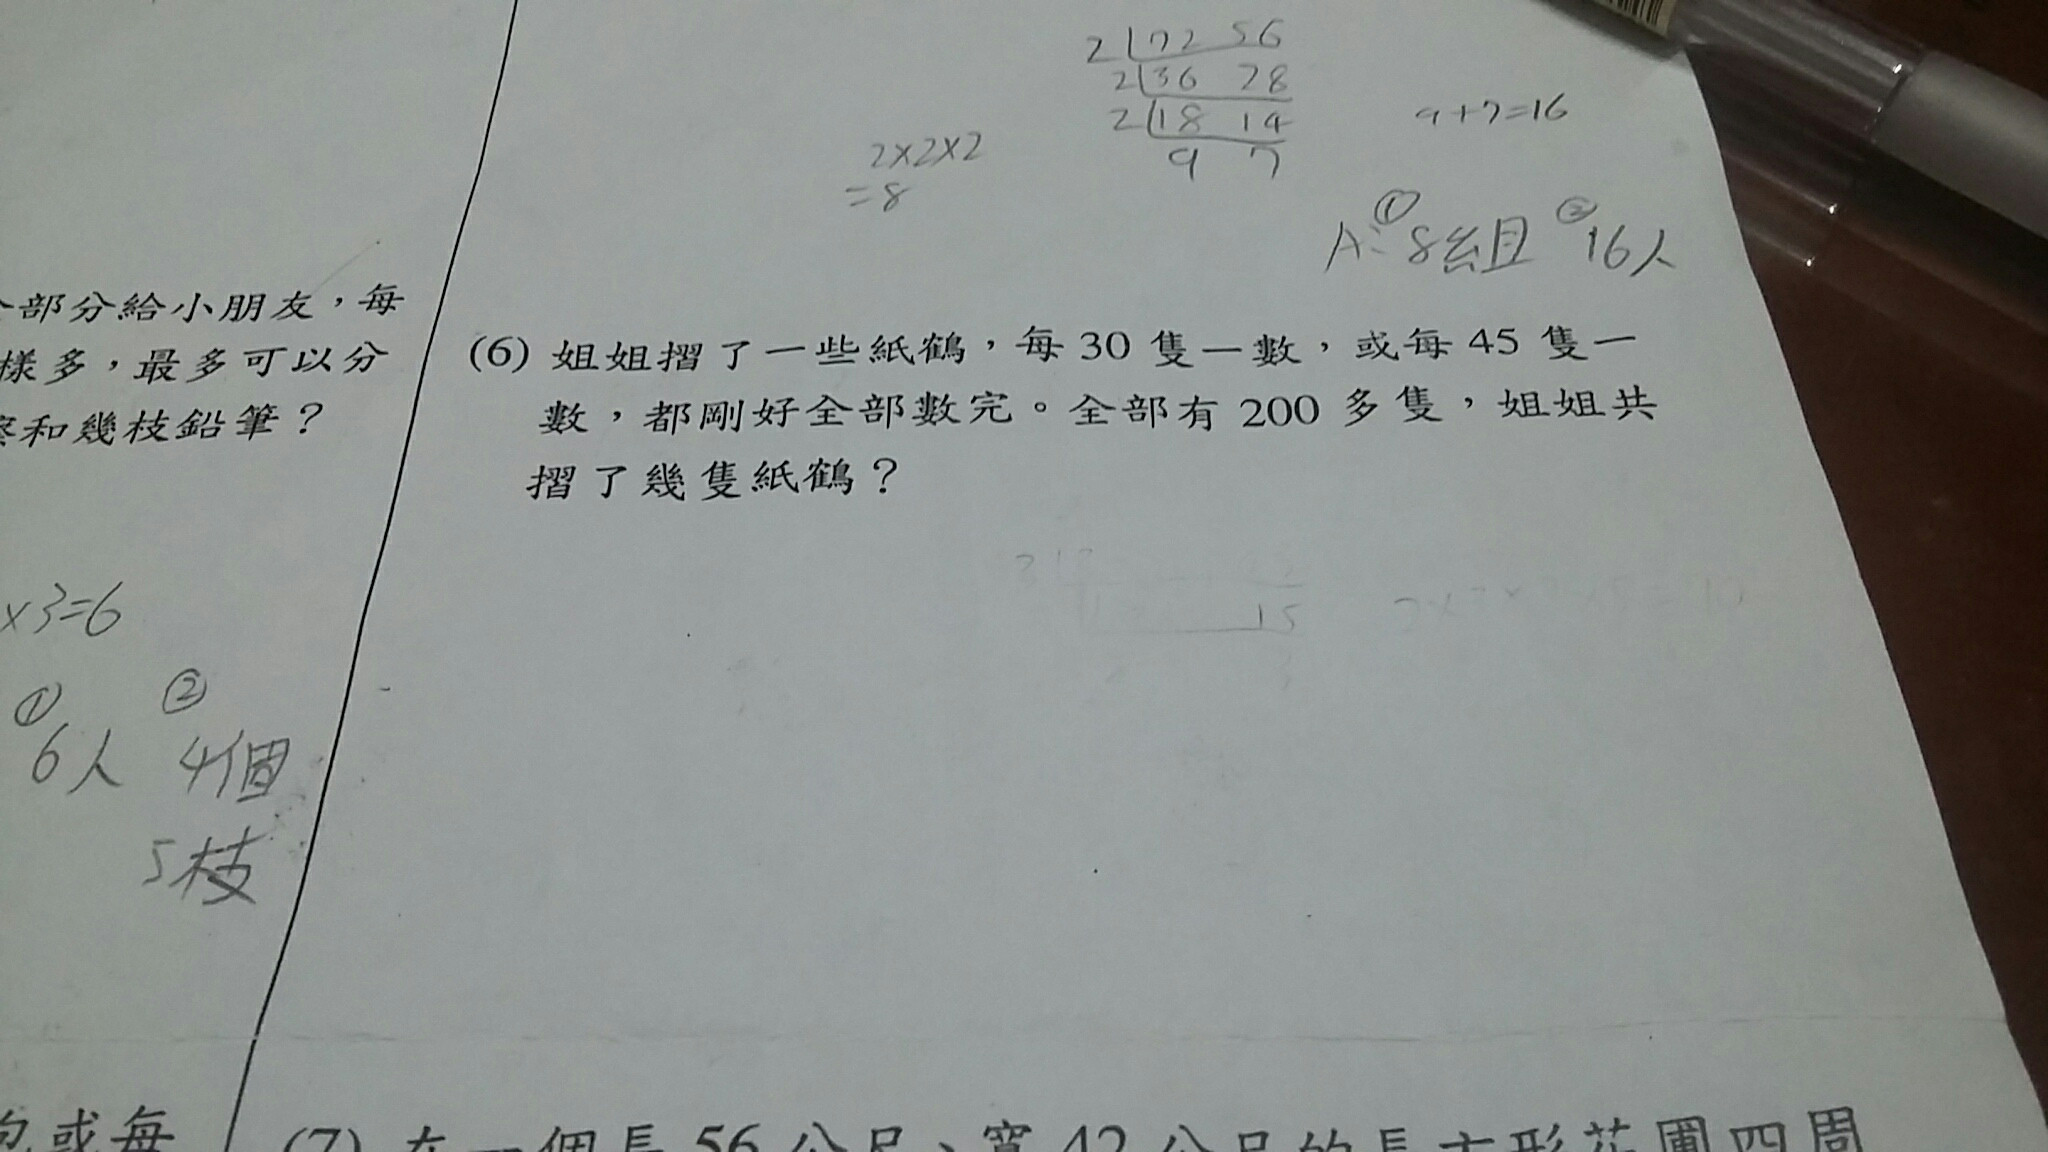 2 72 56
2 36 28
2 18 14
9 7
9+7=16
2×2×2
=8
A: ①8組 ②16人
部分給小朋友，每
樣多，最多可以分
和幾枝鉛筆？
×3=6
① ②
6人 4個
5枝
(6) 姐姐摺了一些紙鶴，每 30 隻一數，或每 45 隻一
數，都剛好全部數完。全部有 200 多隻，姐姐共
摺了幾隻紙鶴？
15
或每
(7) 在一個長 56 公尺、寬 42 公尺的長方形花圃四周